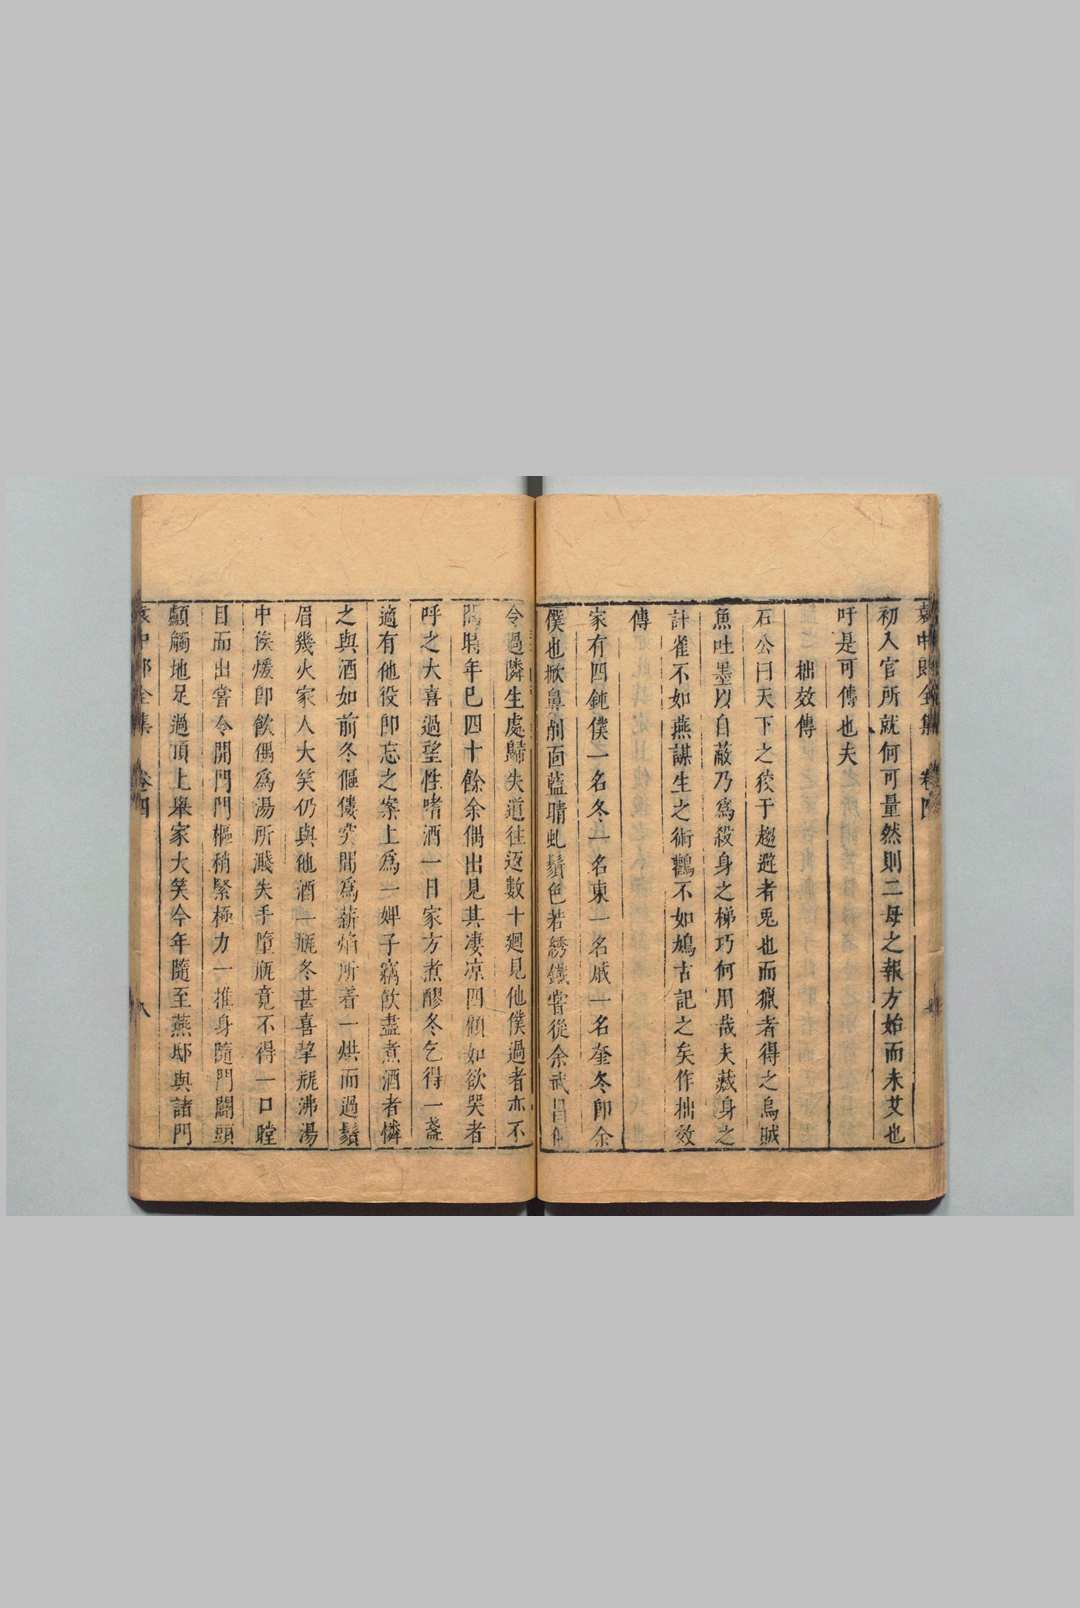 袁中郎全集 卷四
初入官所就何可量然則二母之報方始而未艾也
吁是可傳也夫
拙效傳
石公曰天下之狡于趨避者兎也而獵者得之烏賊
魚吐墨以自蔽乃爲殺身之梯巧何用哉夫藏身之
計雀不如燕謀生之術鸛不如鳩古記之矣作拙效
傳
家有四鈍僕一名冬一名東一名戚一名奎冬卽余
僕也掀鼻削面藍睛虬鬚色若綉鐵嘗從余武昌偶
令過隣生處歸失道往返數十廻見他僕過者亦不
問時年已四十餘余偶出見其凄凉四顧如欲哭者
呼之大喜過望性嗜酒一日家方煮醪冬乞得一盞
適有他役卽忘之案上爲一婢子竊飲盡煮酒者憐
之與酒如前冬傴僂突間爲薪焰所着一烘而過鬚
眉幾火家人大笑仍與他酒一瓶冬甚喜挈瓶沸湯
中俟煖卽飲偶爲湯所濺失手墮瓶竟不得一口瞠
目而出嘗令開門門樞稍緊極力一推身隨門闢頭
顱觸地足過頂上舉家大笑今年隨至燕邸與諸門
袁中郎全集 卷四 八